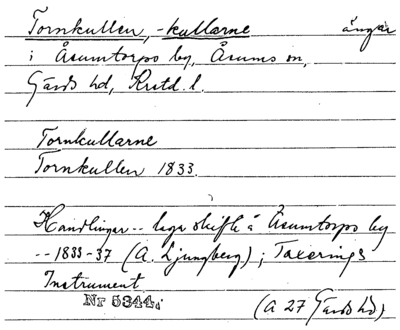 Tornkullen, -kullarne ängar
i Åsumtorps by, Åsums sn,
Gärds hd, Krstd. l.
Tornkullarne
Tornkullen 1833.
Handlingar -- laga skifte å Åsumtorps by
-- 1833-37 (A. Ljungberg); Taxerings
Instrument
Nr 5344d
(A 27 Gärds hd)